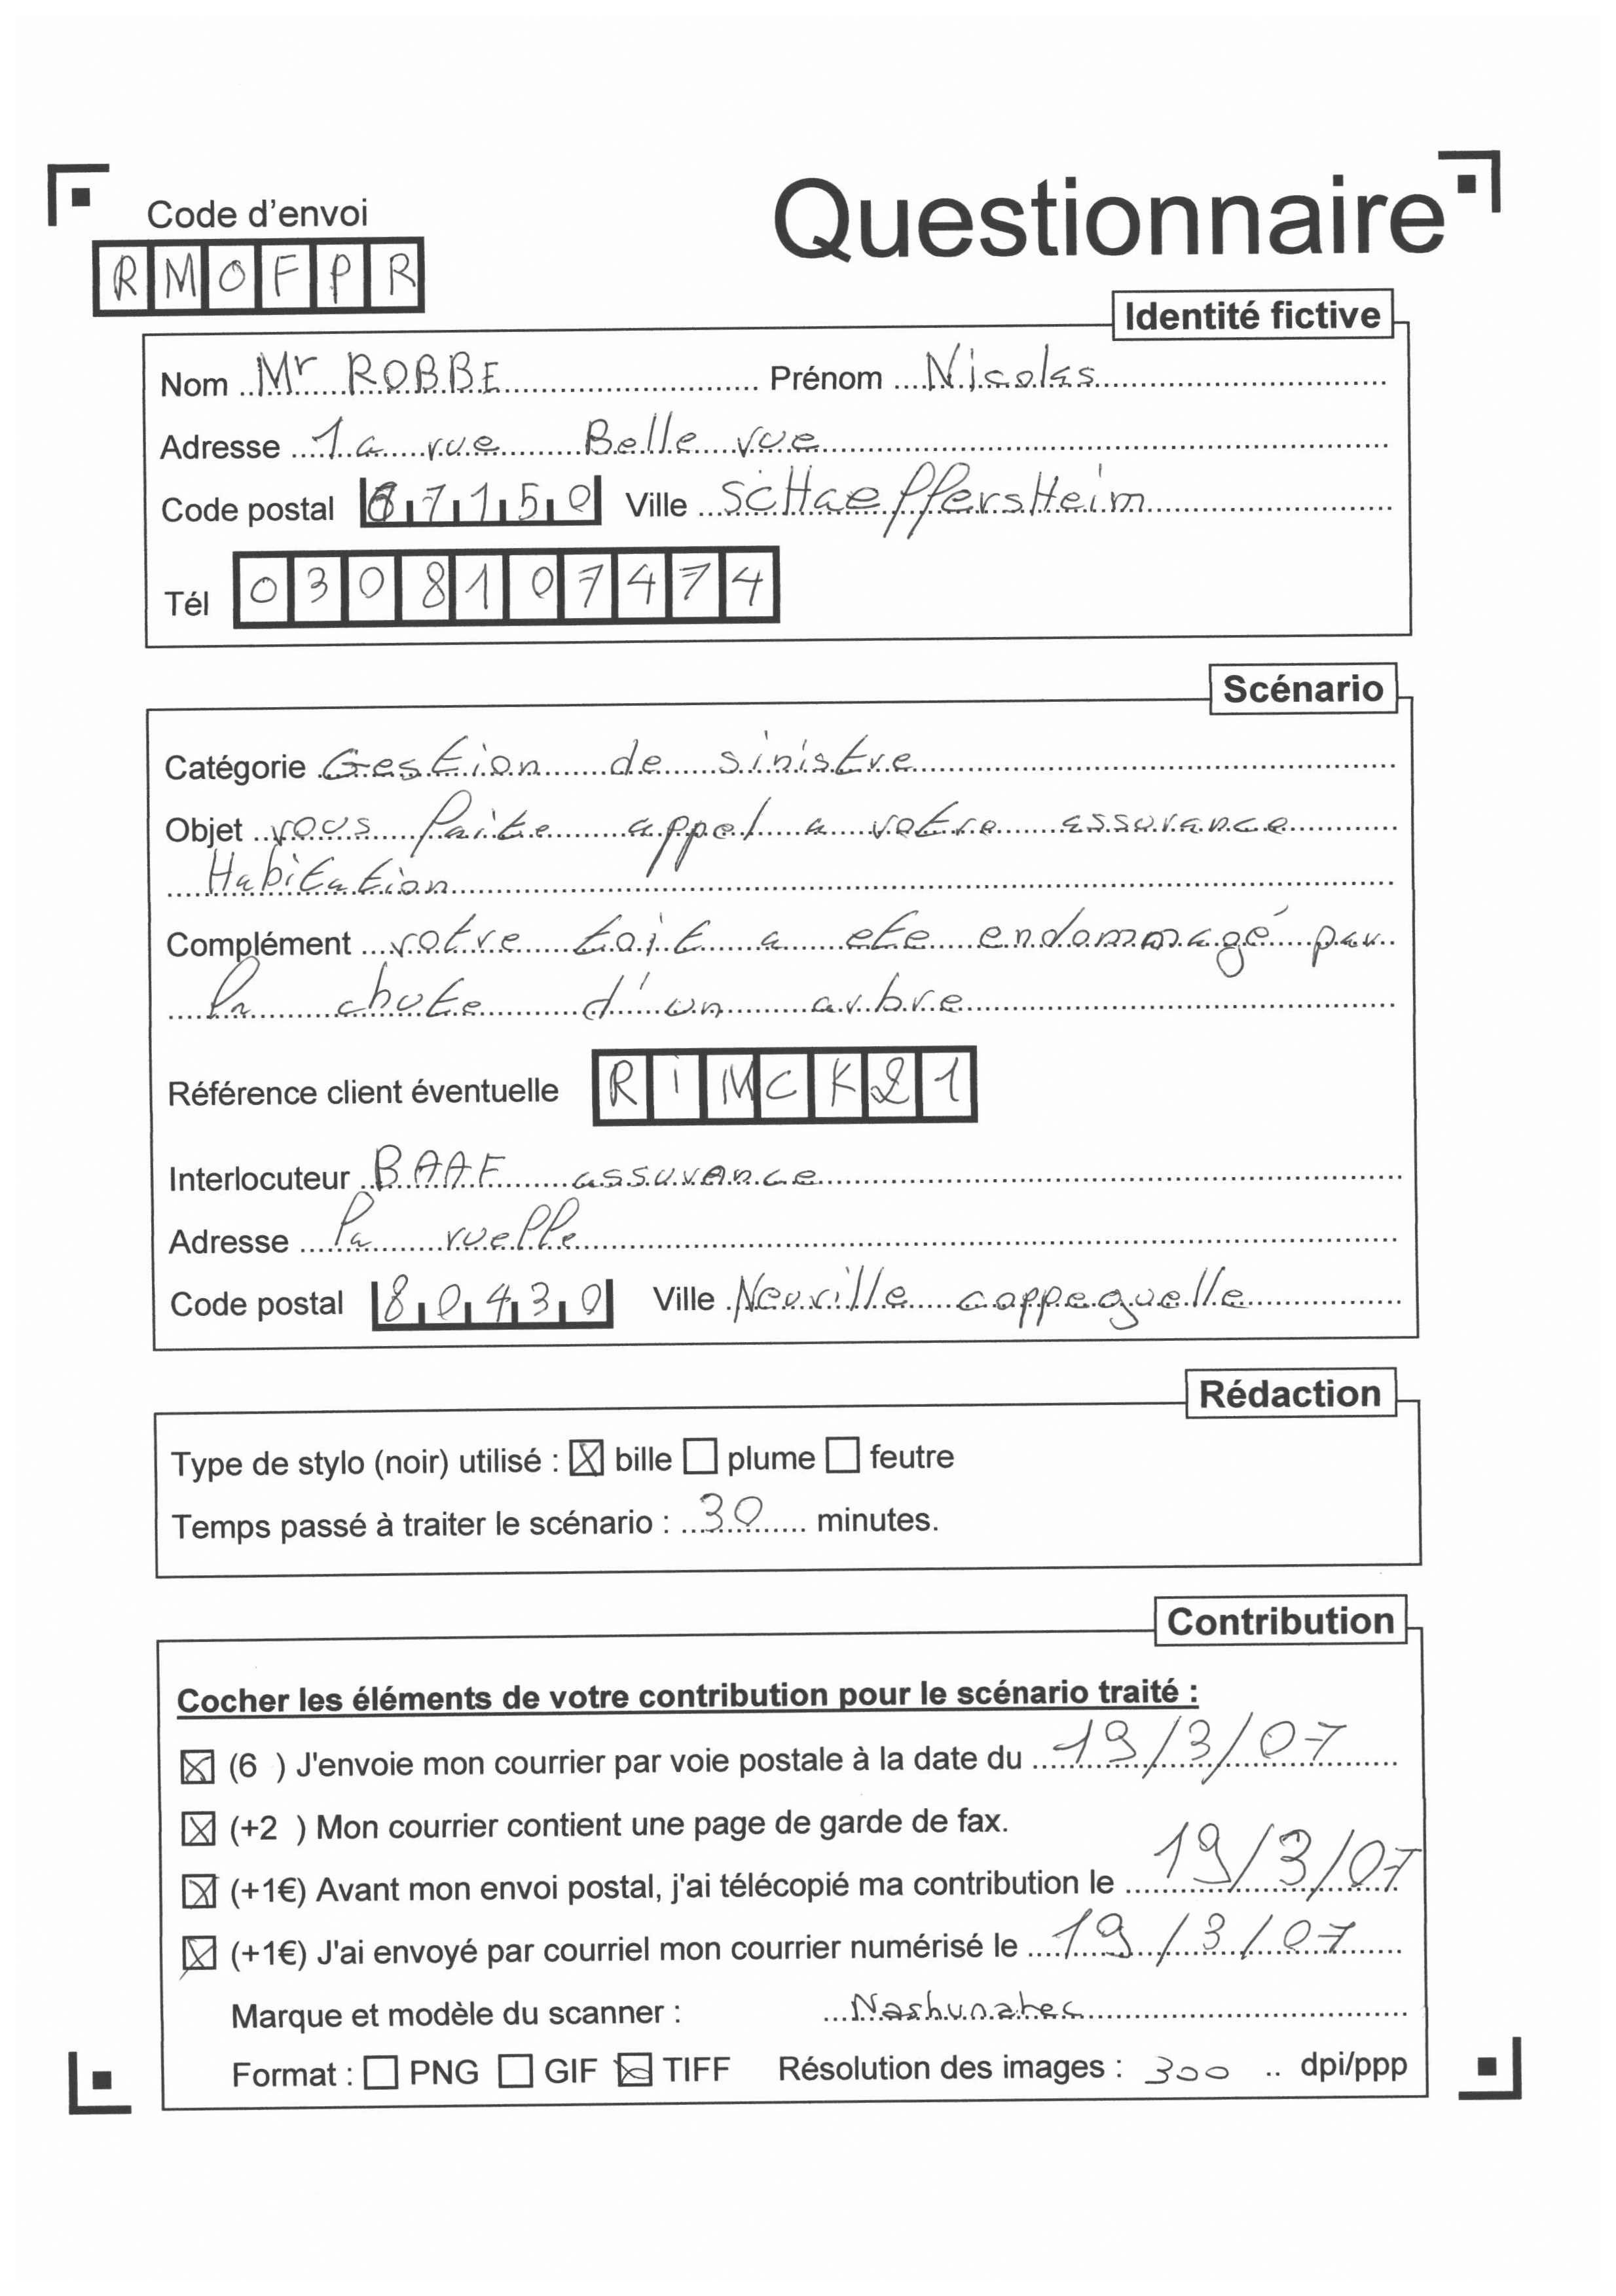 Questionnaire
Code d'envoi
RMOFPR
Identité fictive
Nom Mr ROBBE Prénom Nicolas
Adresse 1a rue Belle vue
Code postal 67150 Ville scHaeffersHeim
Tél 0308107474
Scénario
Catégorie Gestion de sinistre
Objet vous faite appel a votre assurance
Habitation
Complément votre toit a ete endommagé par
la chute d'un arbre
Référence client éventuelle RIMCK21
Interlocuteur BAAF assurance
Adresse la ruelle
Code postal 80430 Ville Neuville coppeguelle
Rédaction
Type de stylo (noir) utilisé : ☒ bille ☐ plume ☐ feutre
Temps passé à traiter le scénario : 30 minutes.
Contribution
Cocher les éléments de votre contribution pour le scénario traité :
☒ (6 ) J'envoie mon courrier par voie postale à la date du 19/3/07
☒ (+2 ) Mon courrier contient une page de garde de fax.
☒ (+1€) Avant mon envoi postal, j'ai télécopié ma contribution le 19/3/07
☒ (+1€) J'ai envoyé par courriel mon courrier numérisé le 19/3/07
Marque et modèle du scanner : Nashunatec
Format : ☐ PNG ☐ GIF ☒ TIFF Résolution des images : 300 .. dpi/ppp